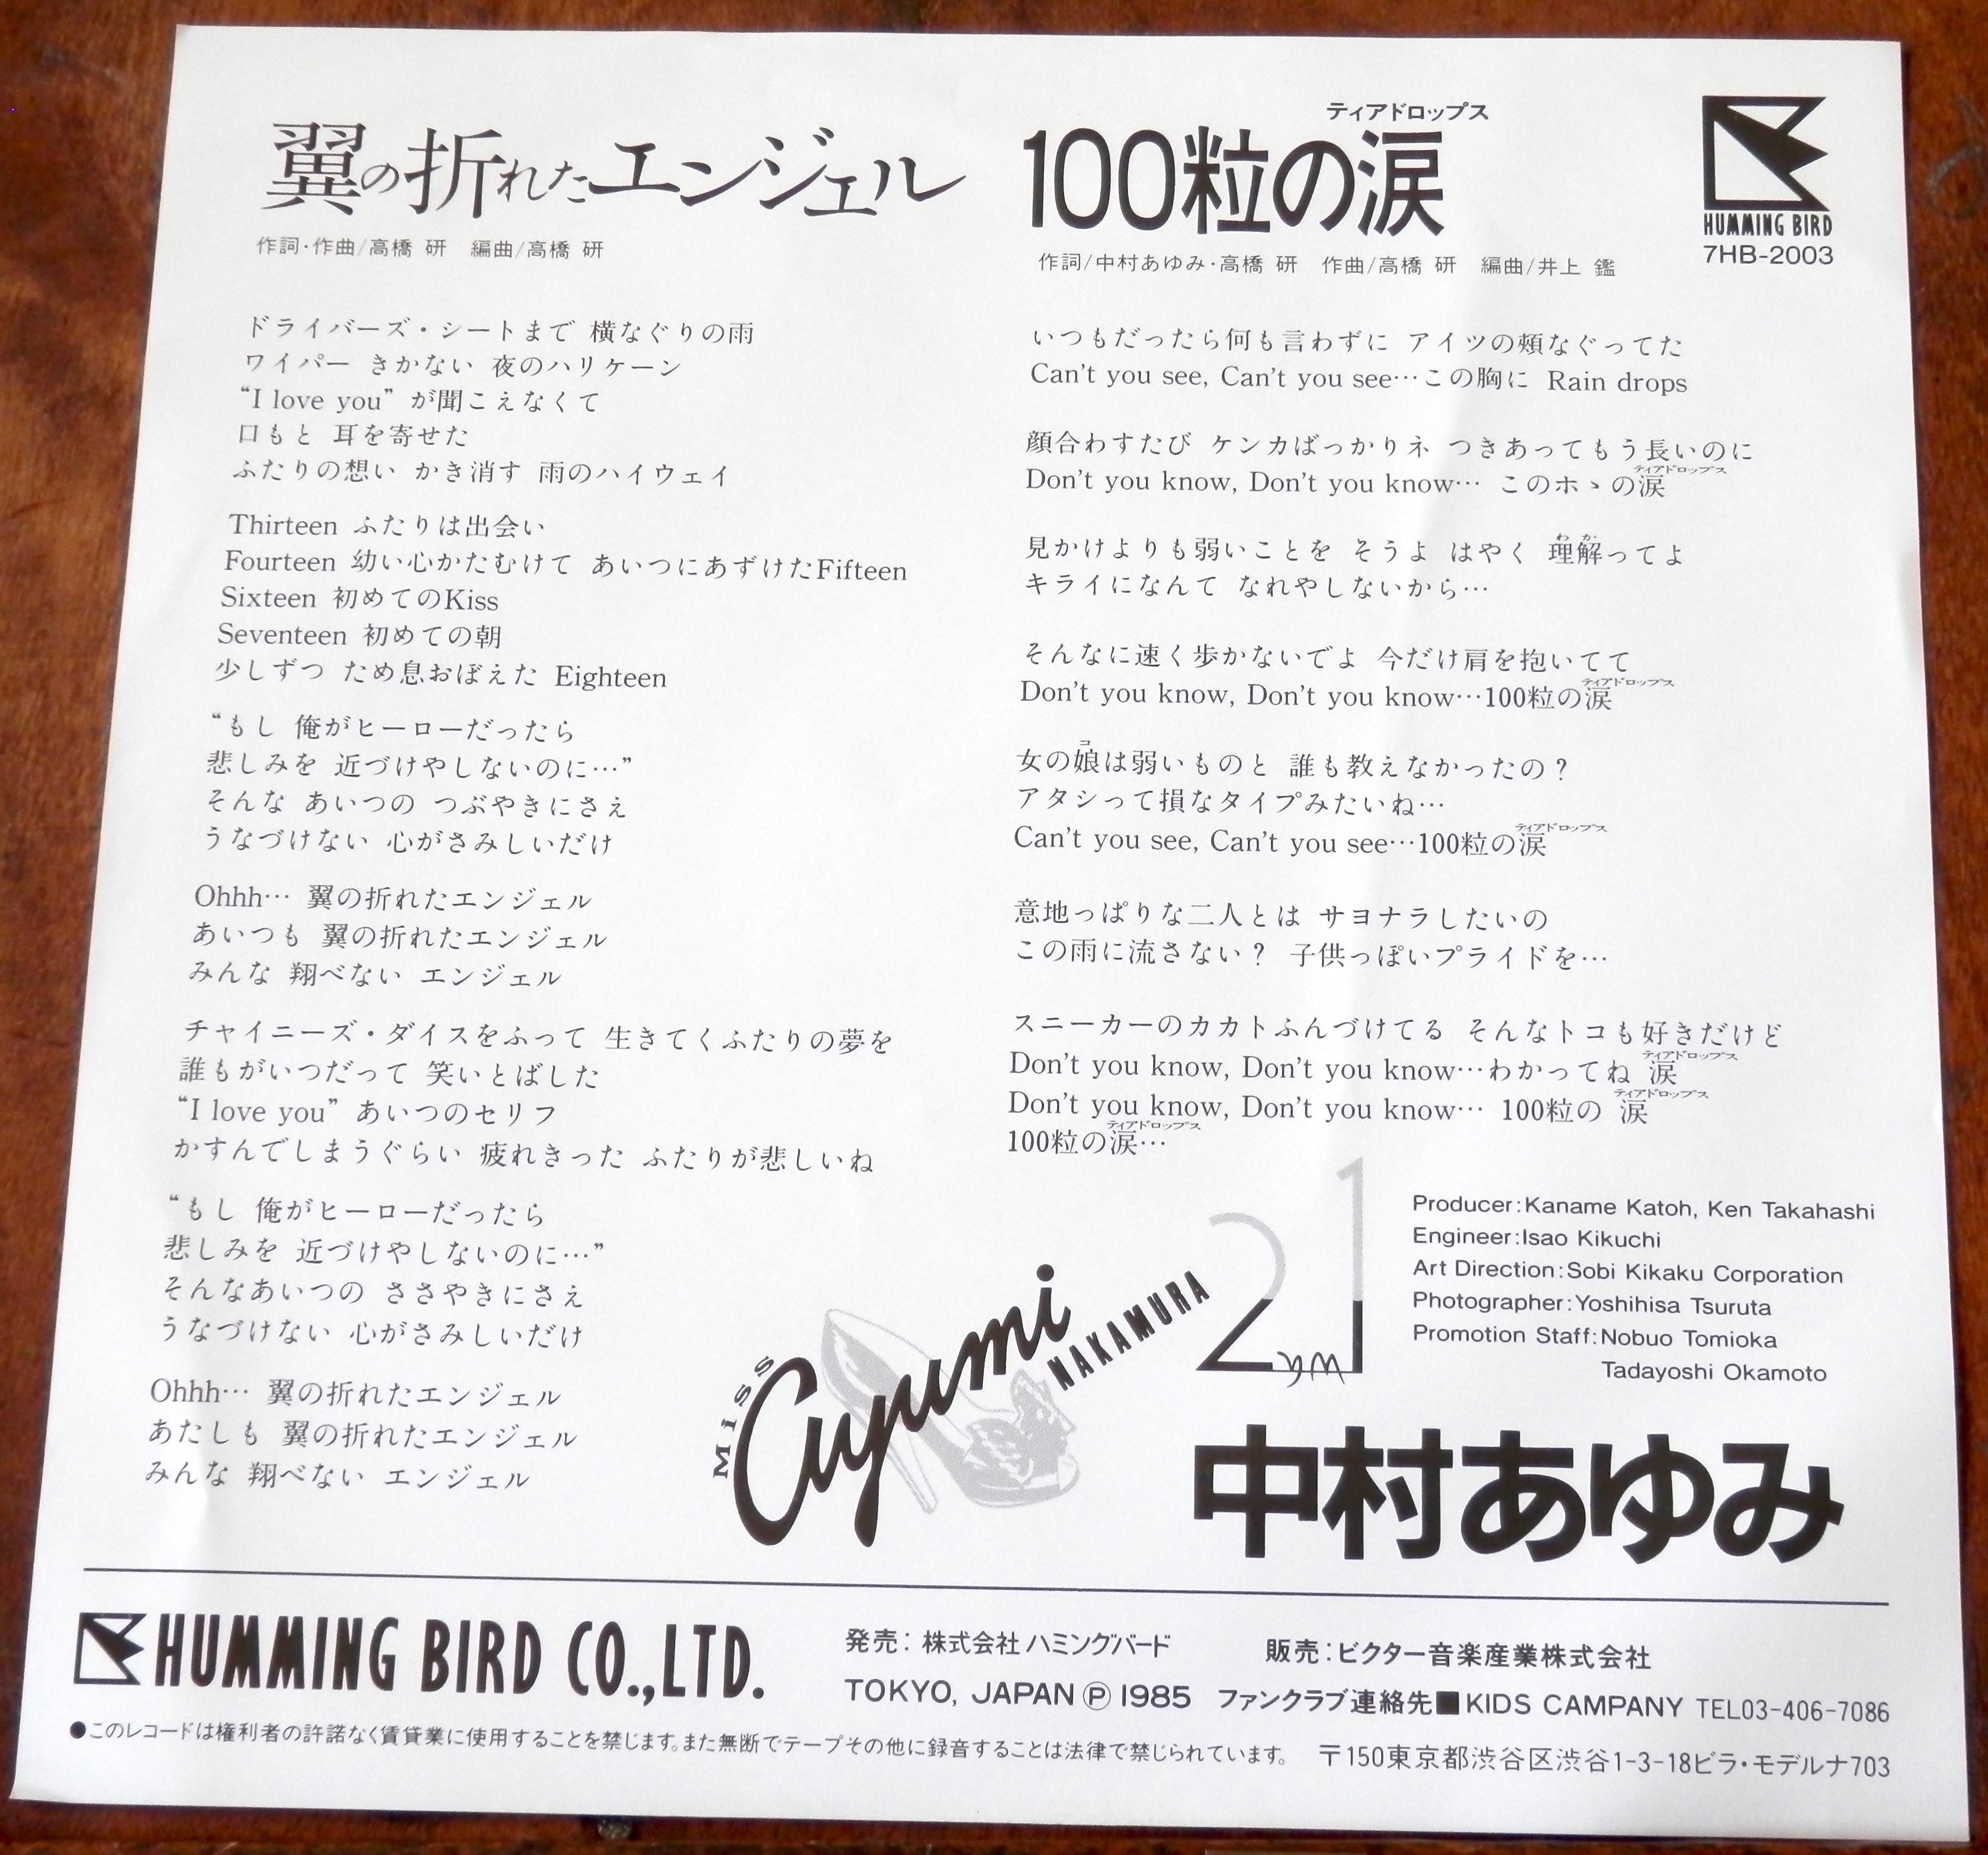 翼の折れたエンジェル
作詞・作曲/高橋 研　編曲/高橋 研
ドライバーズ・シートまで 横なぐりの雨
ワイパー きかない 夜のハリケーン
“I love you” が聞こえなくて
口もと 耳を寄せた
ふたりの想い かき消す 雨のハイウェイ
Thirteen ふたりは出会い
Fourteen 幼い心かたむけて あいつにあずけたFifteen
Sixteen 初めてのKiss
Seventeen 初めての朝
少しずつ ため息おぼえた Eighteen
“もし 俺がヒーローだったら
悲しみを 近づけやしないのに…”
そんな あいつの つぶやきにさえ
うなづけない 心がさみしいだけ
Ohhh… 翼の折れたエンジェル
あいつも 翼の折れたエンジェル
みんな 翔べない エンジェル
チャイニーズ・ダイスをふって 生きてくふたりの夢を
誰もがいつだって 笑いとばした
“I love you” あいつのセリフ
かすんでしまうぐらい 疲れきった ふたりが悲しいね
“もし 俺がヒーローだったら
悲しみを 近づけやしないのに…”
そんなあいつの ささやきにさえ
うなづけない 心がさみしいだけ
Ohhh… 翼の折れたエンジェル
あたしも 翼の折れたエンジェル
みんな 翔べない エンジェル
ティアドロップス
100粒の涙
作詞/中村あゆみ・高橋 研　作曲/高橋 研　編曲/井上 鑑
HUMMING BIRD
7HB-2003
いつもだったら何も言わずに アイツの頰なぐってた
Can't you see, Can't you see…この胸に Rain drops
顔合わすたび ケンカばっかりネ つきあってもう長いのに
ティアドロップス
Don't you know, Don't you know… このホヽの涙
わか
見かけよりも弱いことを そうよ はやく 理解ってよ
キライになんて なれやしないから…
そんなに速く歩かないでよ 今だけ肩を抱いてて
ティアドロップス
Don't you know, Don't you know…100粒の涙
コ
女の娘は弱いものと 誰も教えなかったの？
アタシって損なタイプみたいね…
ティアドロップス
Can't you see, Can't you see…100粒の涙
意地っぱりな二人とは サヨナラしたいの
この雨に流さない？ 子供っぽいプライドを…
スニーカーのカカトふんづけてる そんなトコも好きだけど
ティアドロップス
Don't you know, Don't you know…わかってね 涙
ティアドロップス
Don't you know, Don't you know… 100粒の 涙
ティアドロップス
100粒の涙…
Producer:Kaname Katoh, Ken Takahashi
Engineer:Isao Kikuchi
Art Direction:Sobi Kikaku Corporation
Photographer:Yoshihisa Tsuruta
Promotion Staff:Nobuo Tomioka
Tadayoshi Okamoto
Miss Ayumi NAKAMURA
21
中村あゆみ
HUMMING BIRD CO.,LTD.
発売：株式会社ハミングバード　販売：ビクター音楽産業株式会社
TOKYO, JAPAN Ⓟ 1985 ファンクラブ連絡先■KIDS CAMPANY TEL03-406-7086
●このレコードは権利者の許諾なく賃貸業に使用することを禁じます。また無断でテープその他に録音することは法律で禁じられています。 〒150東京都渋谷区渋谷1-3-18ビラ・モデルナ703